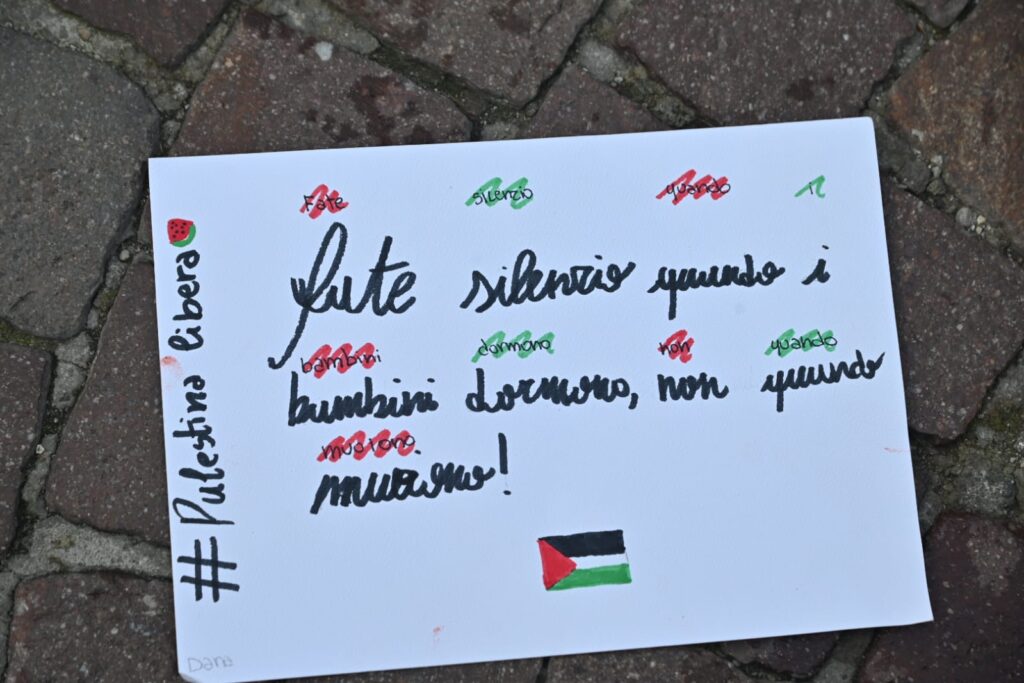 Fate silenzio quando i
fate silenzio quando i
bambini dormono non quando
bambini dormono, non quando
muoiono.
muoiono!
#Palestina libera
Dana